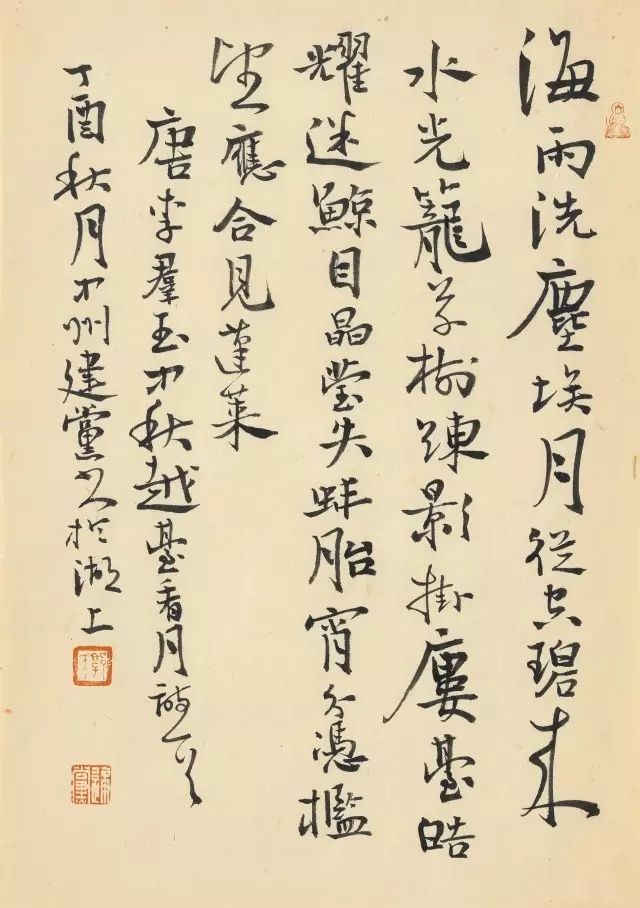 海雨洗塵埃月從空碧來
水光籠草樹練影掛廔臺皓
耀迷鯨目晶瑩失蚌胎宵分憑檻
望應合見蓬萊
唐李羣玉中秋越臺看月詩一首
丁酉秋月中州建黨書於湖上